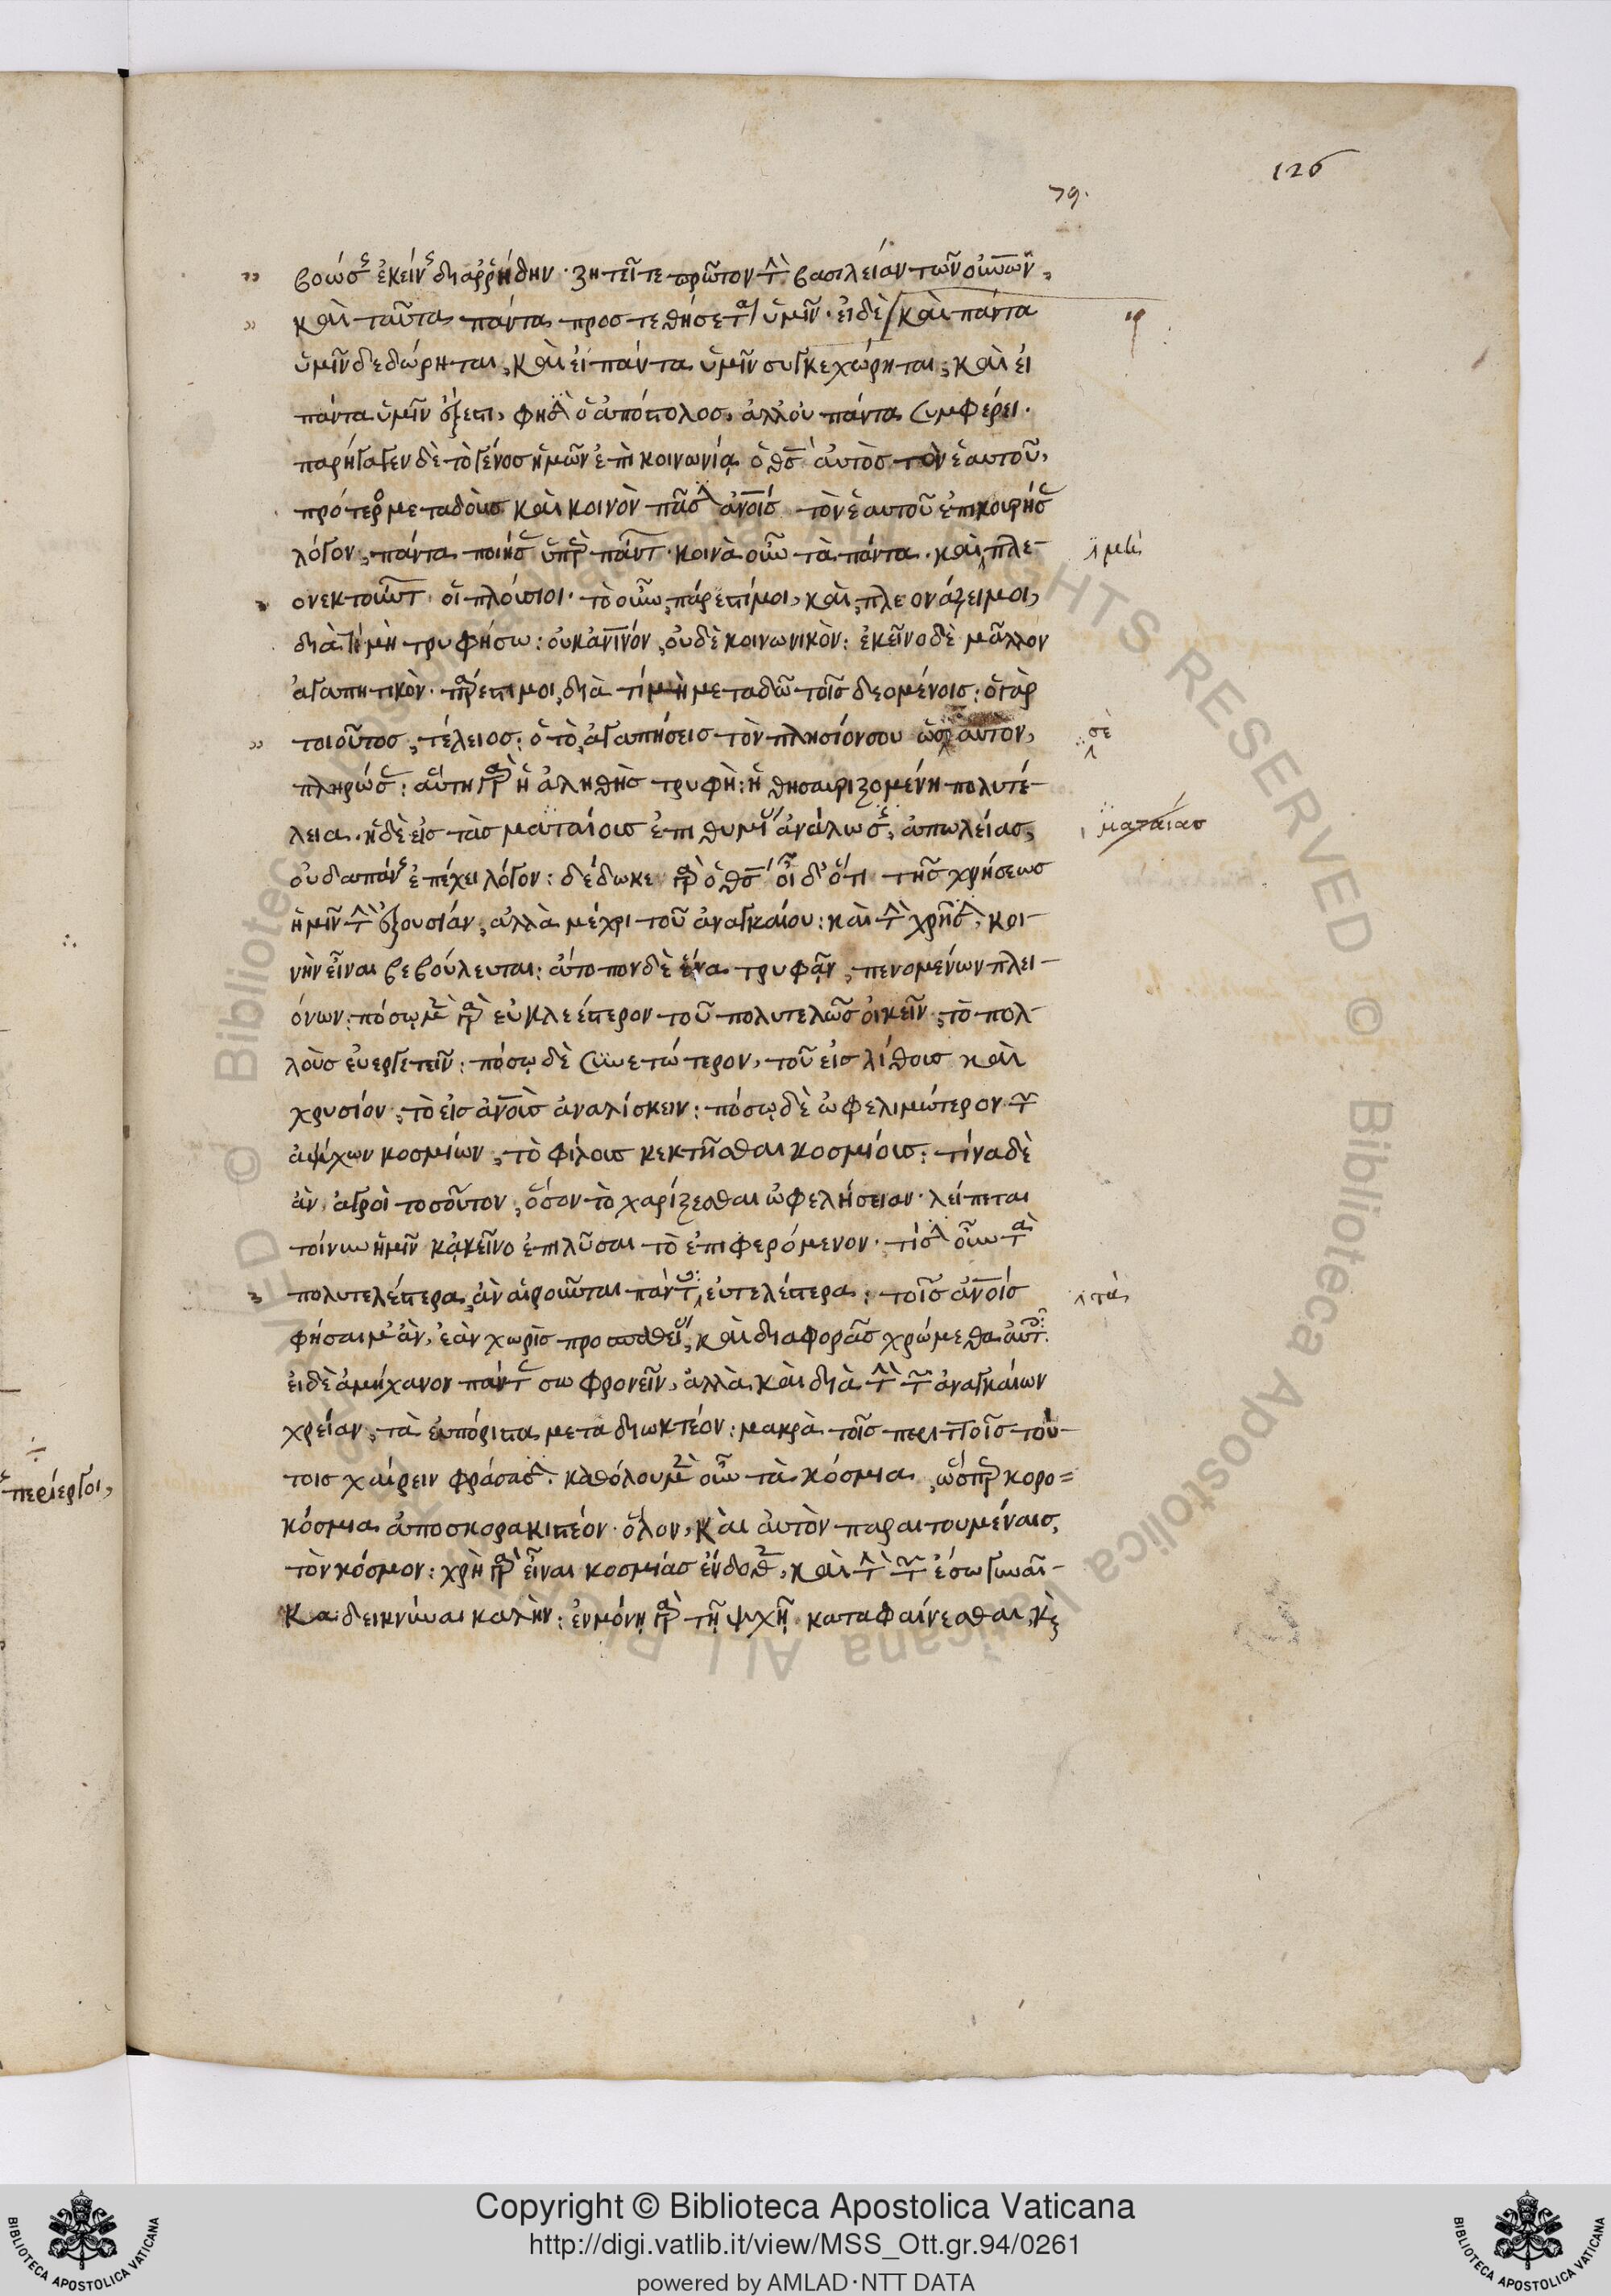 126
79.
βοώσης ἐκείνης διαρρήδην · ζητεῖτε πρῶτον τὴν βασιλείαν τῶν οὐνῶν,
καὶ ταῦτα πάντα προστεθήσεται ὑμῖν · εἰ δὲ καὶ πάντα
ὑμῖν δεδώρηται, καὶ εἰ πάντα ὑμῖν συγκεχώρηται, καὶ εἰ
πάντα ὑμῖν ἔξεστι, φησὶν ὁ ἀπόστολος, ἀλλ' οὐ πάντα συμφέρει ·
παρήγαγεν δὲ τὸ γένος ἡμῶν ἐπὶ κοινωνίᾳ ὁ θς αὐτὸς τὸν ἑαυτοῦ,
πρότερος μεταδοὺς καὶ κοινὸν πᾶσιν ἀνοις τὸν ἑαυτοῦ ἐπικουρήσας
λόγον, πάντα ποιήσας ὑπὲρ πάντων · κοινὰ οὖν τὰ πάντα · καὶ πλε-
μὴ
ονεκτούντων οἱ πλούσιοι · τὸ οὖν, πάρεστί μοι, καὶ, πλεονάζει μοι,
διὰ τί μὴ τρυφήσω: οὐκ ἀνινον, οὐδὲ κοινωνικὸν: ἐκεῖνο δὲ μᾶλλον
ἀγαπητικὸν · πάρεστι μοι, διὰ τί μὴ μεταδῶ τοῖς δεομένοις: ὁ γὰρ
τοιοῦτος, τέλειος: ὁ τὸ, ἀγαπήσεις τὸν πλησίον σου ὡς αυτον,
σὲ
πληρώσας: αὕτη γὰρ ἡ ἀληθὴς τρυφὴ: ἡ θησαυριζομένη πολυτέ-
λεια · ἡ δὲ εἰς τὰς ματαίους ἐπιθυμίας ἀνάλωσις, ἀπωλείας,
ματαίας
οὐ δαπάνης ἐπέχει λόγον: δέδωκε γὰρ ὁ θς οἶδ' ὅτι τῆς χρήσεως
ἡμῖν τὴν ἐξουσίαν, ἀλλὰ μέχρι τοῦ ἀναγκαίου: καὶ τὴν χρῆσιν, κοι-
νὴν εἶναι βεβούλευται: ἄτοπον δὲ ἕνα τρυφᾶν, πενομένων πλει-
όνων: πόσῳ μὲν γὰρ εὐκλεέστερον τοῦ πολυτελῶς οἰκεῖν, τὸ πολ-
λοὺς εὐεργετεῖν: πόσῳ δὲ συνετώτερον, τοῦ εἰς λίθους καὶ
χρυσίον, τὸ εἰς ἀνους ἀναλίσκειν: πόσῳ δὲ ὠφελιμώτερον τῶν
ἀψύχων κοσμίων, τὸ φίλους κεκτῆσθαι κοσμίους: τίνα δὲ
ἀν ἀγροὶ τοσοῦτον, ὅσον τὸ χαρίζεσθαι ὠφελήσειαν · λείπεται
τοίνυν ἡμῖν κἀκεῖνο ἐπιλῦσαι τὸ ἐπιφερόμενον · τίσιν οὖν τὰ
πολυτελέστερα, ἂν αἱρῶνται πάντες εὐτελέστερα: τοῖς ἀνοις
τὰ
φήσαιμ' ἀν, ἐὰν χωρὶς προσπαθείας, καὶ διαφορᾶς χρώμεθα αὐτοῖς ·
εἰ δὲ ἀμήχανον πάντας σωφρονεῖν, ἀλλὰ καὶ διὰ τὴν τῶν ἀναγκαίων
χρείαν, τὰ εὐπόριστα μεταδιωκτέον: μακρὰ τοῖς περιττοῖς τού-
τοις χαίρειν φράσασιν · καθόλου μὲν οὖν τὰ κόσμια, ὥσπερ κορο=
κόσμια ἀποσκορακιστέον · ὅλον, καὶ αὐτὸν παραιτουμέναις,
τὸν κόσμον: χρὴ γὰρ εἶναι κοσμίας ἔνδοθεν, καὶ τὴν τῶν ἔσω γυναῖ-
κα δεικνύναι καλὴν: ἐν μόνῃ γὰρ τῇ ψυχῇ καταφαίνεσθαι, κὲ
περίεργοι,
© Biblioteca Apostolica Vaticana ALL RIGHTS RESERVED
Copyright © Biblioteca Apostolica Vaticana
http://digi.vatlib.it/view/MSS_Ott.gr.94/0261
powered by AMLAD·NTT DATA
BIBLIOTECA APOSTOLICA VATICANA
BIBLIOTECA APOSTOLICA VATICANA